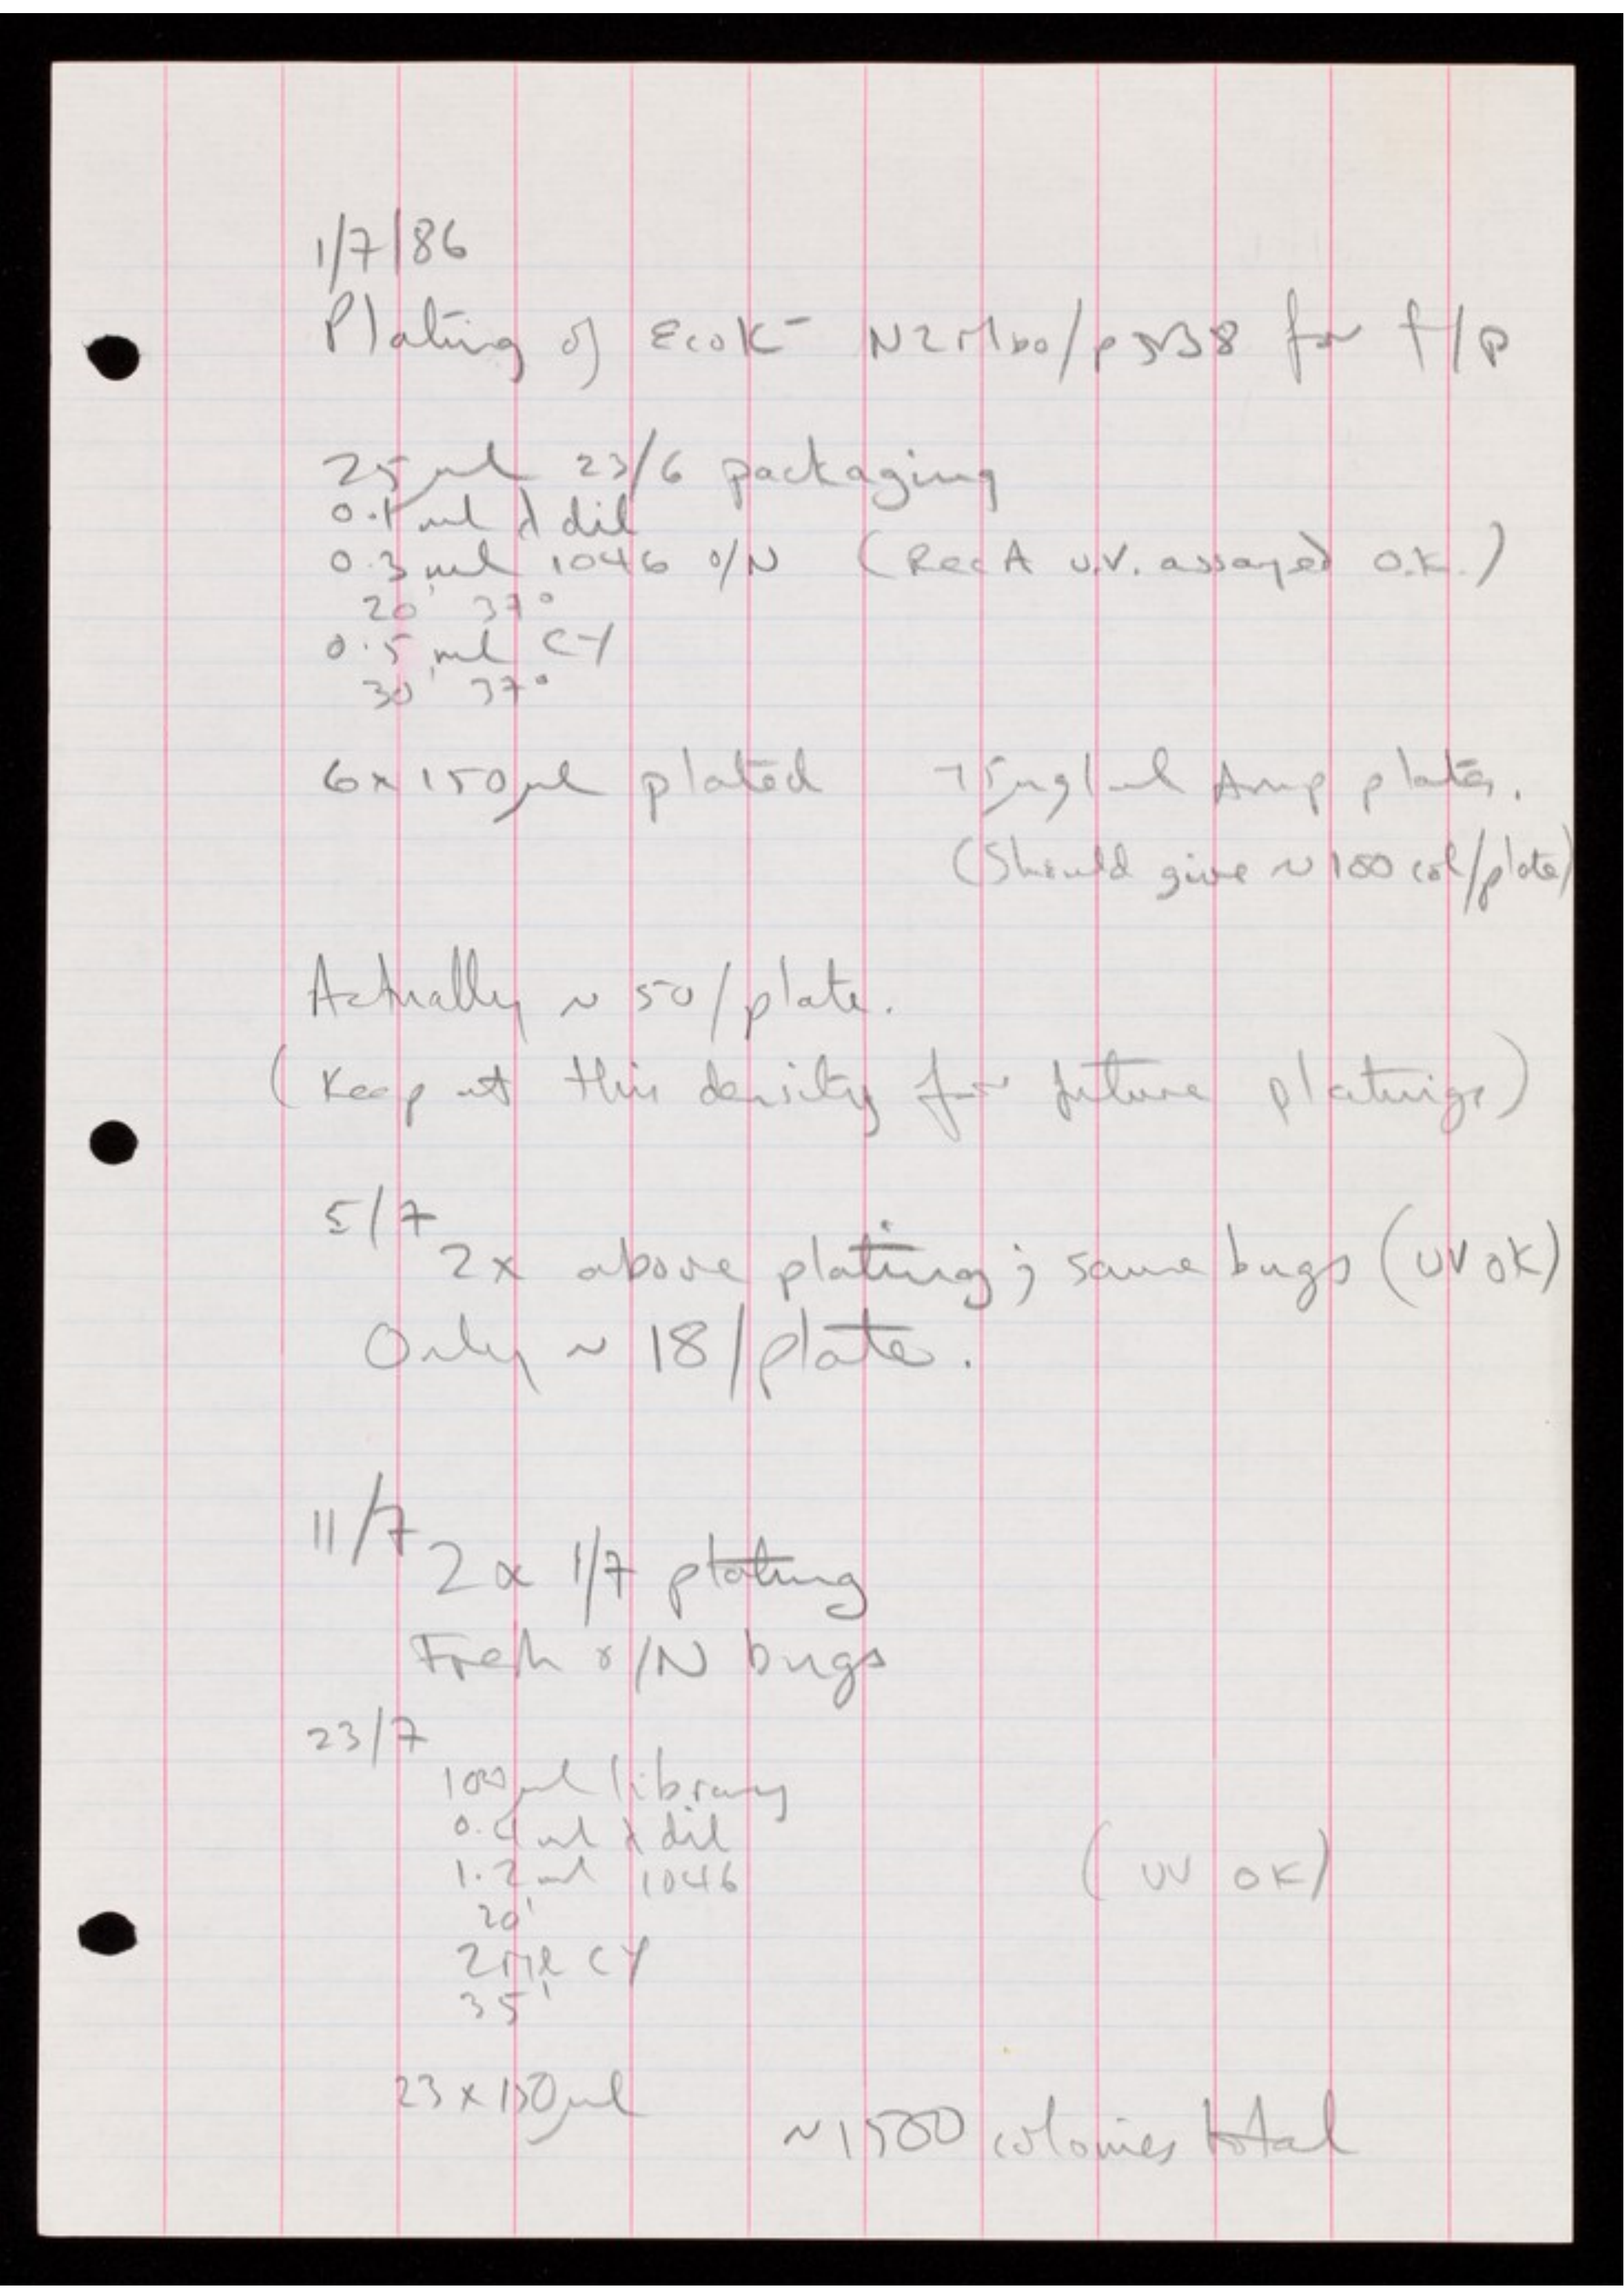 1/7/86
Plating of EcoK⁻ N2Mbo/pJB8 for f/p
25µl 23/6 packaging
0.1ml λ dil
0.3ml 1046 o/N (RecA u.v. assayed o.k.)
20' 37°
0.5 ml CY
30' 37°
6 x 150µl plated 75µg/ml Amp plates.
(Should give ~ 100 col/plate)
Actually ~ 50/plate.
(Keep at this density for future platings)
5/7
2x above plating; same bugs (UV OK)
Only ~ 18/plate.
11/7
2 x 1/7 plating
Fresh o/N bugs
23/7
100µl library
0.4ml λ dil
1.2ml 1046 (UV OK)
20'
2ml CY
35'
23 x 150µl
~1500 colonies total